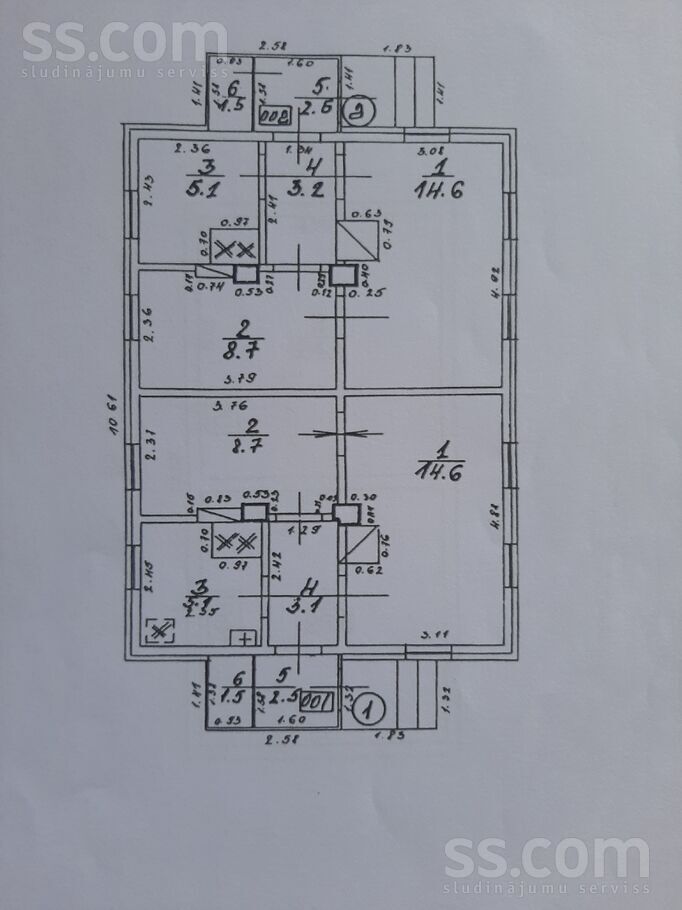 ss.com
sludinājumu serviss
2.58
1.83
0.83
1.60
1.41
6
1.5
5
2.6
002
2
1.41
1.41
2.36
3
5.1
1.34
4
3.2
3.08
1
14.6
2.43
2.41
0.63
0.79
0.97
0.70
0.74
0.53
0.12
0.25
0.40
4.02
2.36
2
8.7
3.79
10.61
3.76
2
8.7
2.31
1
14.6
0.83
0.53
0.30
1.29
4.82
0.70
0.97
2.42
0.62
0.76
2.45
3
5.1
2.35
4
3.1
3.11
6
1.5
5
2.5
001
1
1.41
1.32
1.38
1.32
1.32
0.93
1.60
2.58
1.83
ss.com
sludinājumu serviss